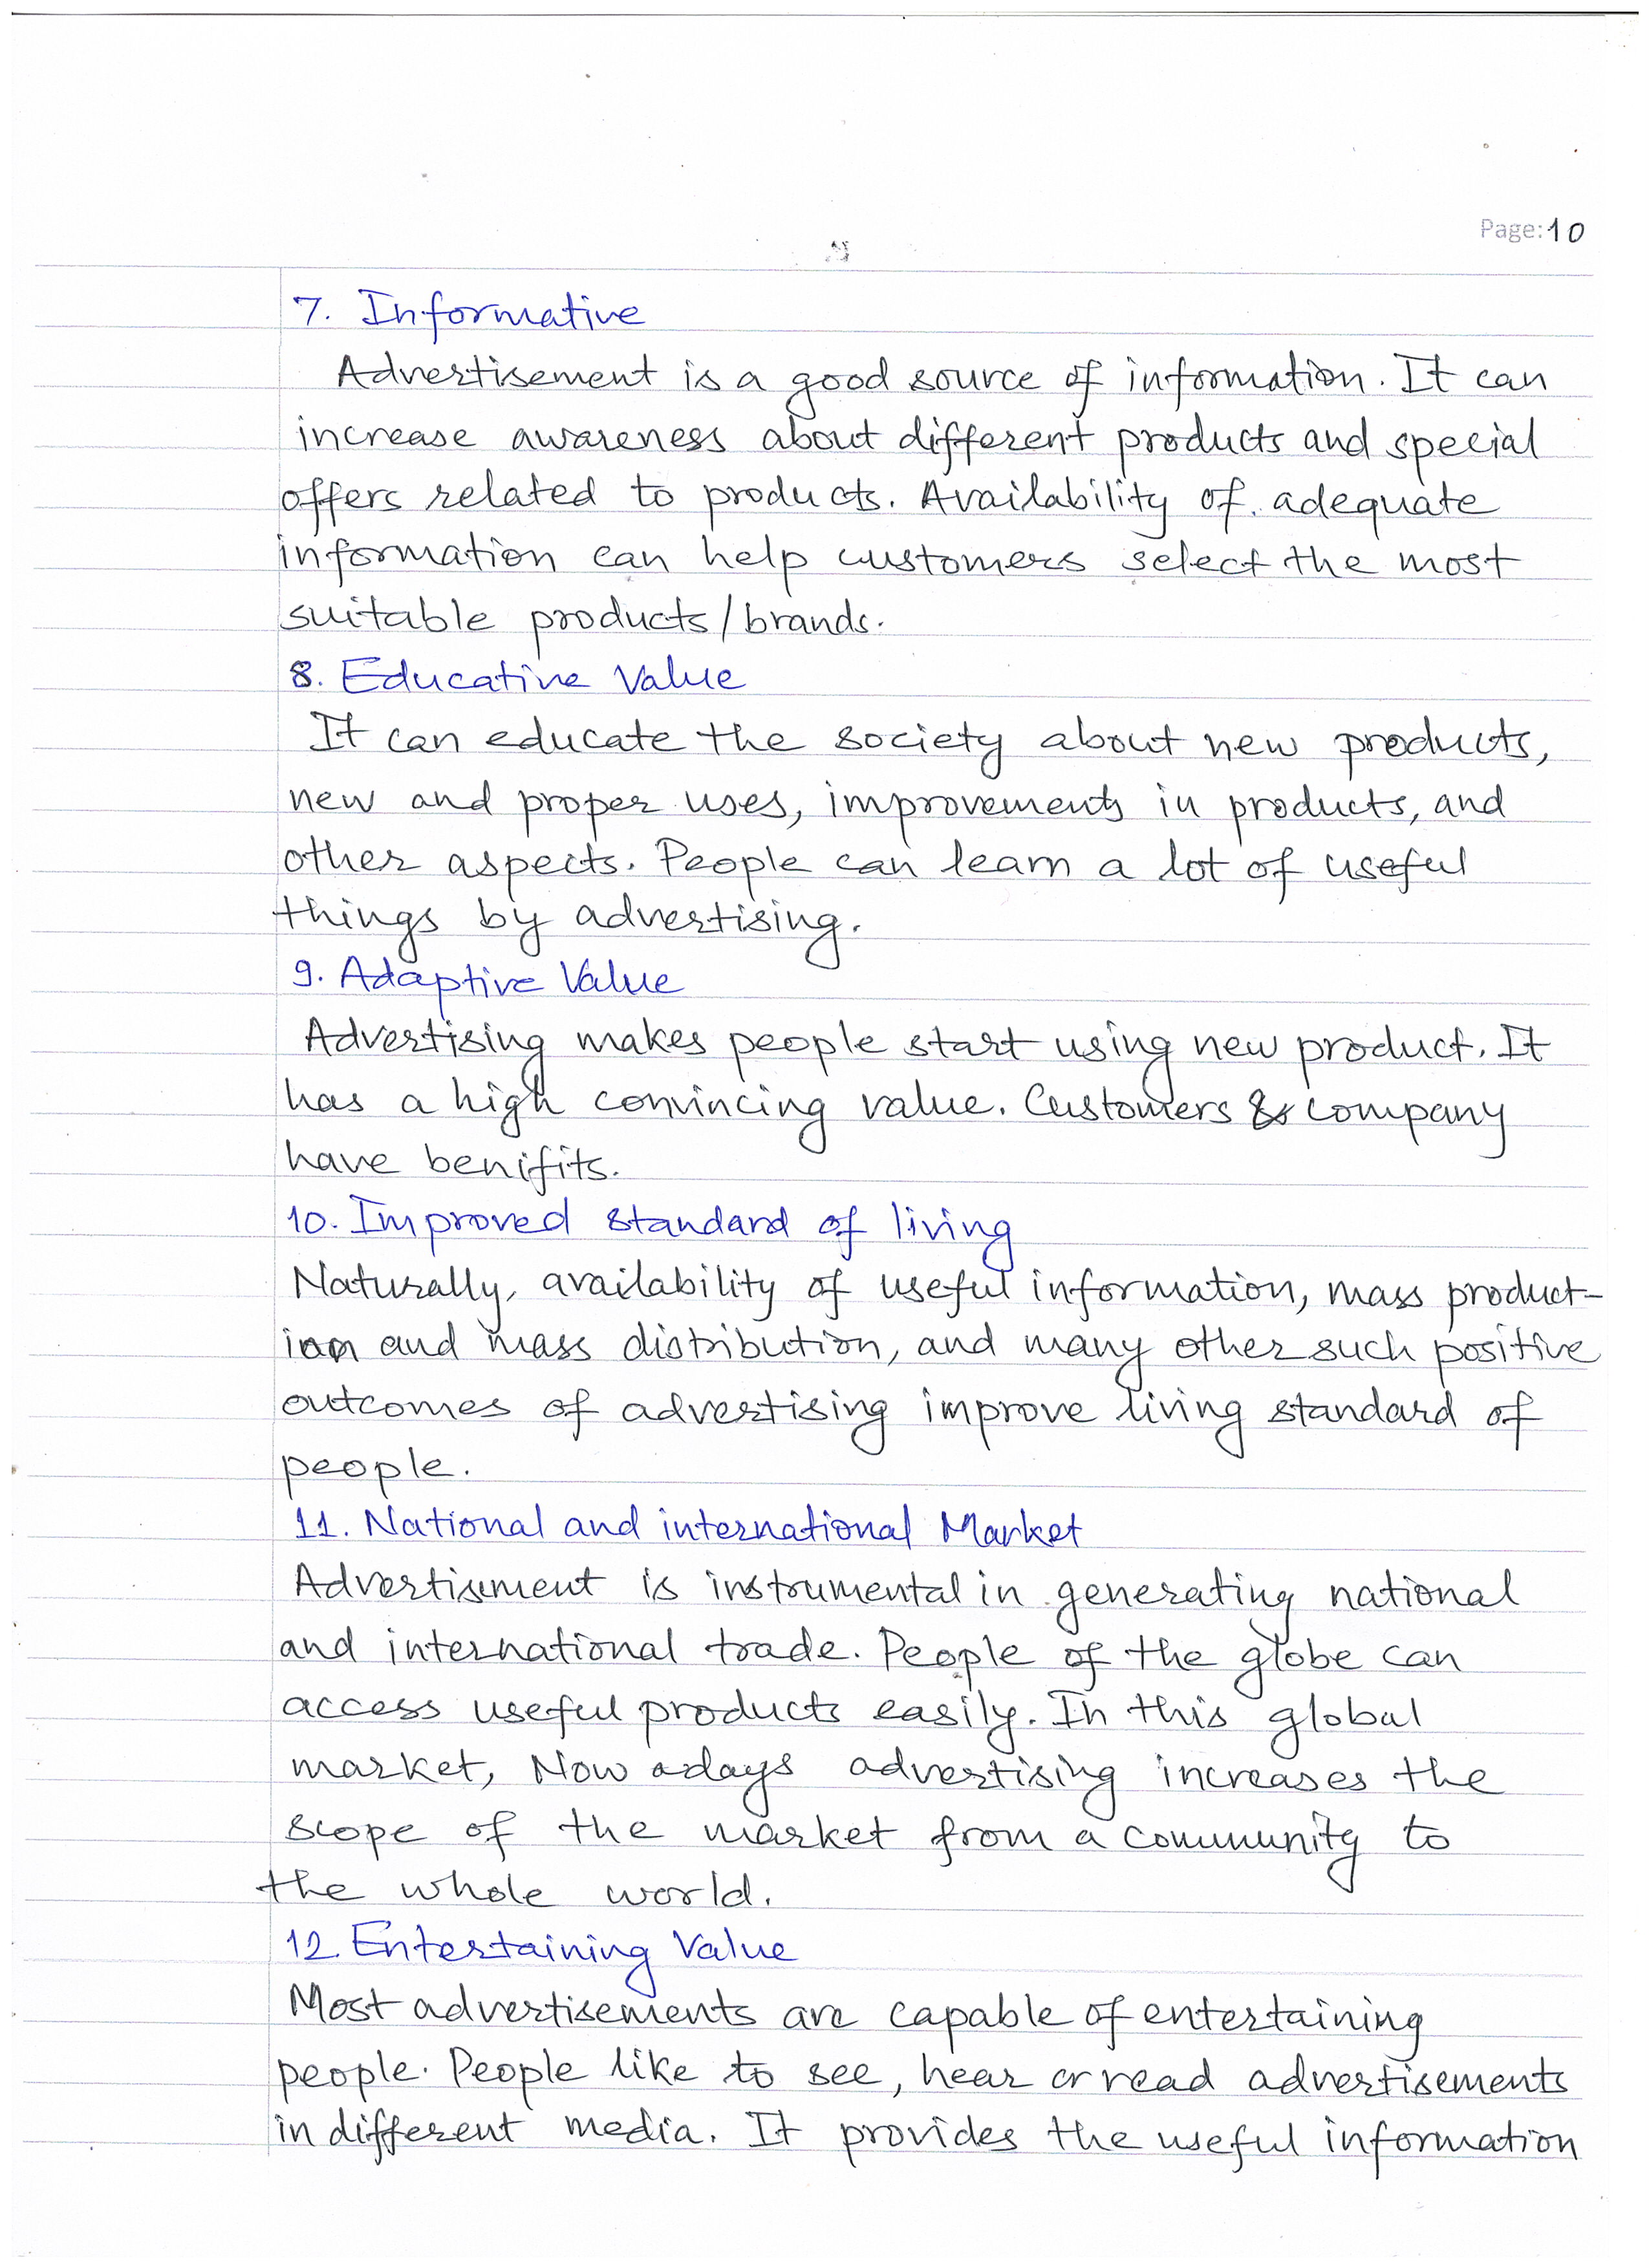 Page: 10
7. Informative
Advertisement is a good source of information. It can
increase awareness about different products and special
offers related to products. Availability of adequate
information can help customers select the most
suitable products/brands.
8. Educative Value
It can educate the society about new products,
new and proper uses, improvements in products, and
other aspects. People can learn a lot of useful
things by advertising.
9. Adaptive Value
Advertising makes people start using new product. It
has a high convincing value. Customers & company
have benifits.
10. Improved standard of living
Naturally, availability of useful information, mass product-
ion and mass distribution, and many other such positive
outcomes of advertising improve living standard of
people.
11. National and international Market
Advertisement is instrumental in generating national
and international trade. People of the globe can
access useful products easily. In this global
market, Now adays advertising increases the
scope of the market from a community to
the whole world.
12. Entertaining Value
Most advertisements are capable of entertaining
people. People like to see, hear or read advertisements
in different media. It provides the useful information